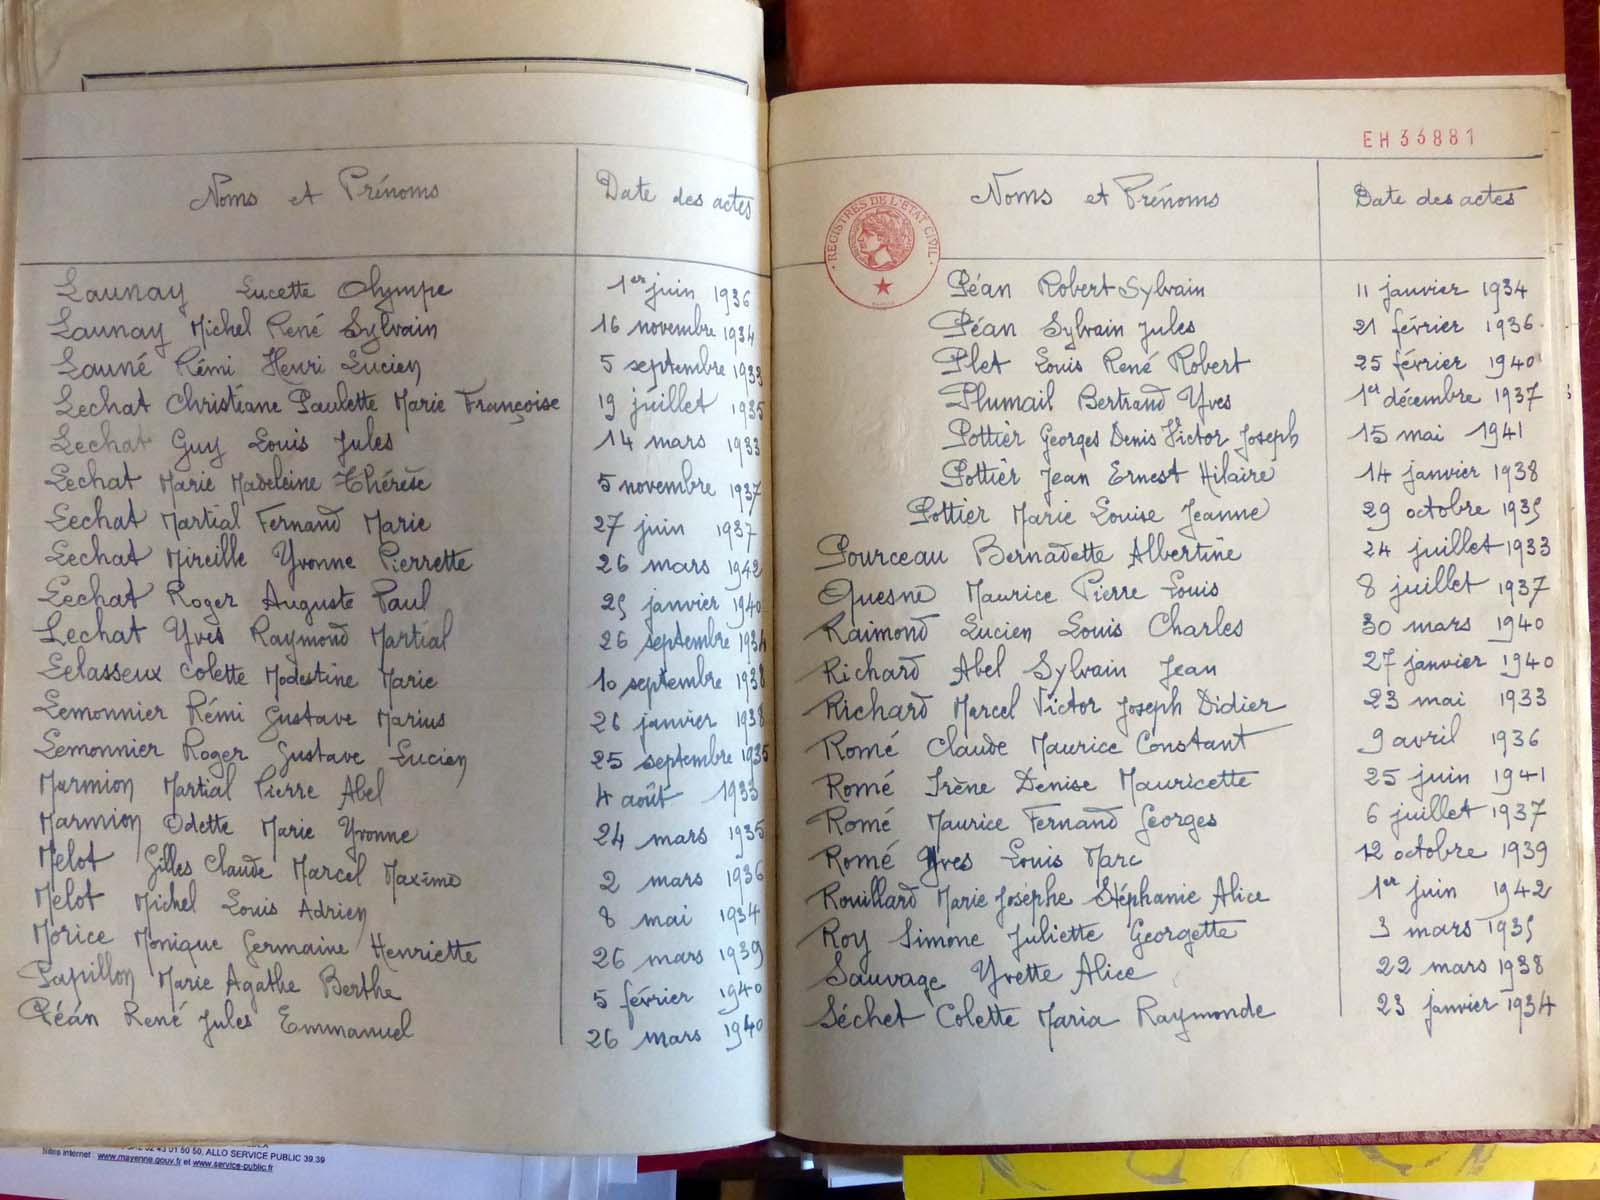 Noms et Prénoms Date des actes
Launay Lucette Olympe 1er juin 1936
Launay Michel René Sylvain 16 novembre 1934
Launé Rémi Henri Lucien 5 septembre 1933
Lechat Christiane Paulette Marie Françoise 19 juillet 1935
Lechat Guy Louis Jules 14 mars 1933
Lechat Marie Madeleine Thérèse 5 novembre 1937
Lechat Martial Fernand Marie 27 juin 1937
Lechat Mireille Yvonne Pierrette 26 mars 1942
Lechat Roger Auguste Paul 25 janvier 1940
Lechat Yves Raymond Martial 26 septembre 1934
Lelasseux Colette Modestine Marie 10 septembre 1938
Lemonnier Rémi Gustave Marius 26 janvier 1938
Lemonnier Roger Gustave Lucien 25 septembre 1935
Marmion Martial Pierre Abel 4 août 1933
Marmion Odette Marie Yvonne 24 mars 1935
Melot Gilles Claude Marcel Maxime 2 mars 1936
Melot Michel Louis Adrien 8 mai 1934
Morice Monique Germaine Henriette 26 mars 1939
Papillon Marie Agathe Berthe 5 février 1940
Péan René Jules Emmanuel 26 mars 1940
EH 33881
Noms et Prénoms Date des actes
REGISTRES DE L'ETAT CIVIL
Péan Robert Sylvain 11 janvier 1934
Péan Sylvain Jules 21 février 1936
Plet Louis René Robert 25 février 1940
Plumail Bertrand Yves 1er décembre 1937
Pottier Georges Denis Victor Joseph 15 mai 1941
Pottier Jean Ernest Hilaire 14 janvier 1938
Pottier Marie Louise Jeanne 29 octobre 1935
Pourceau Bernadette Albertine 24 juillet 1933
Quesne Maurice Pierre Louis 8 juillet 1937
Raimond Lucien Louis Charles 30 mars 1940
Richard Abel Sylvain Jean 27 janvier 1940
Richard Marcel Victor Joseph Didier 23 mai 1933
Romé Claude Maurice Constant 9 avril 1936
Romé Irène Denise Mauricette 25 juin 1941
Romé Maurice Fernand Georges 6 juillet 1937
Romé Yves Louis Marc 12 octobre 1939
Rouillard Marie Josephe Stéphanie Alice 1er juin 1942
Roy Simone Juliette Georgette 3 mars 1935
Sauvage Yvette Alice 22 mars 1938
Séchet Colette Maria Raymonde 23 janvier 1934
02 43 01 50 50, ALLO SERVICE PUBLIC 39.39
Sites internet : www.mayenne.gouv.fr et www.service-public.fr